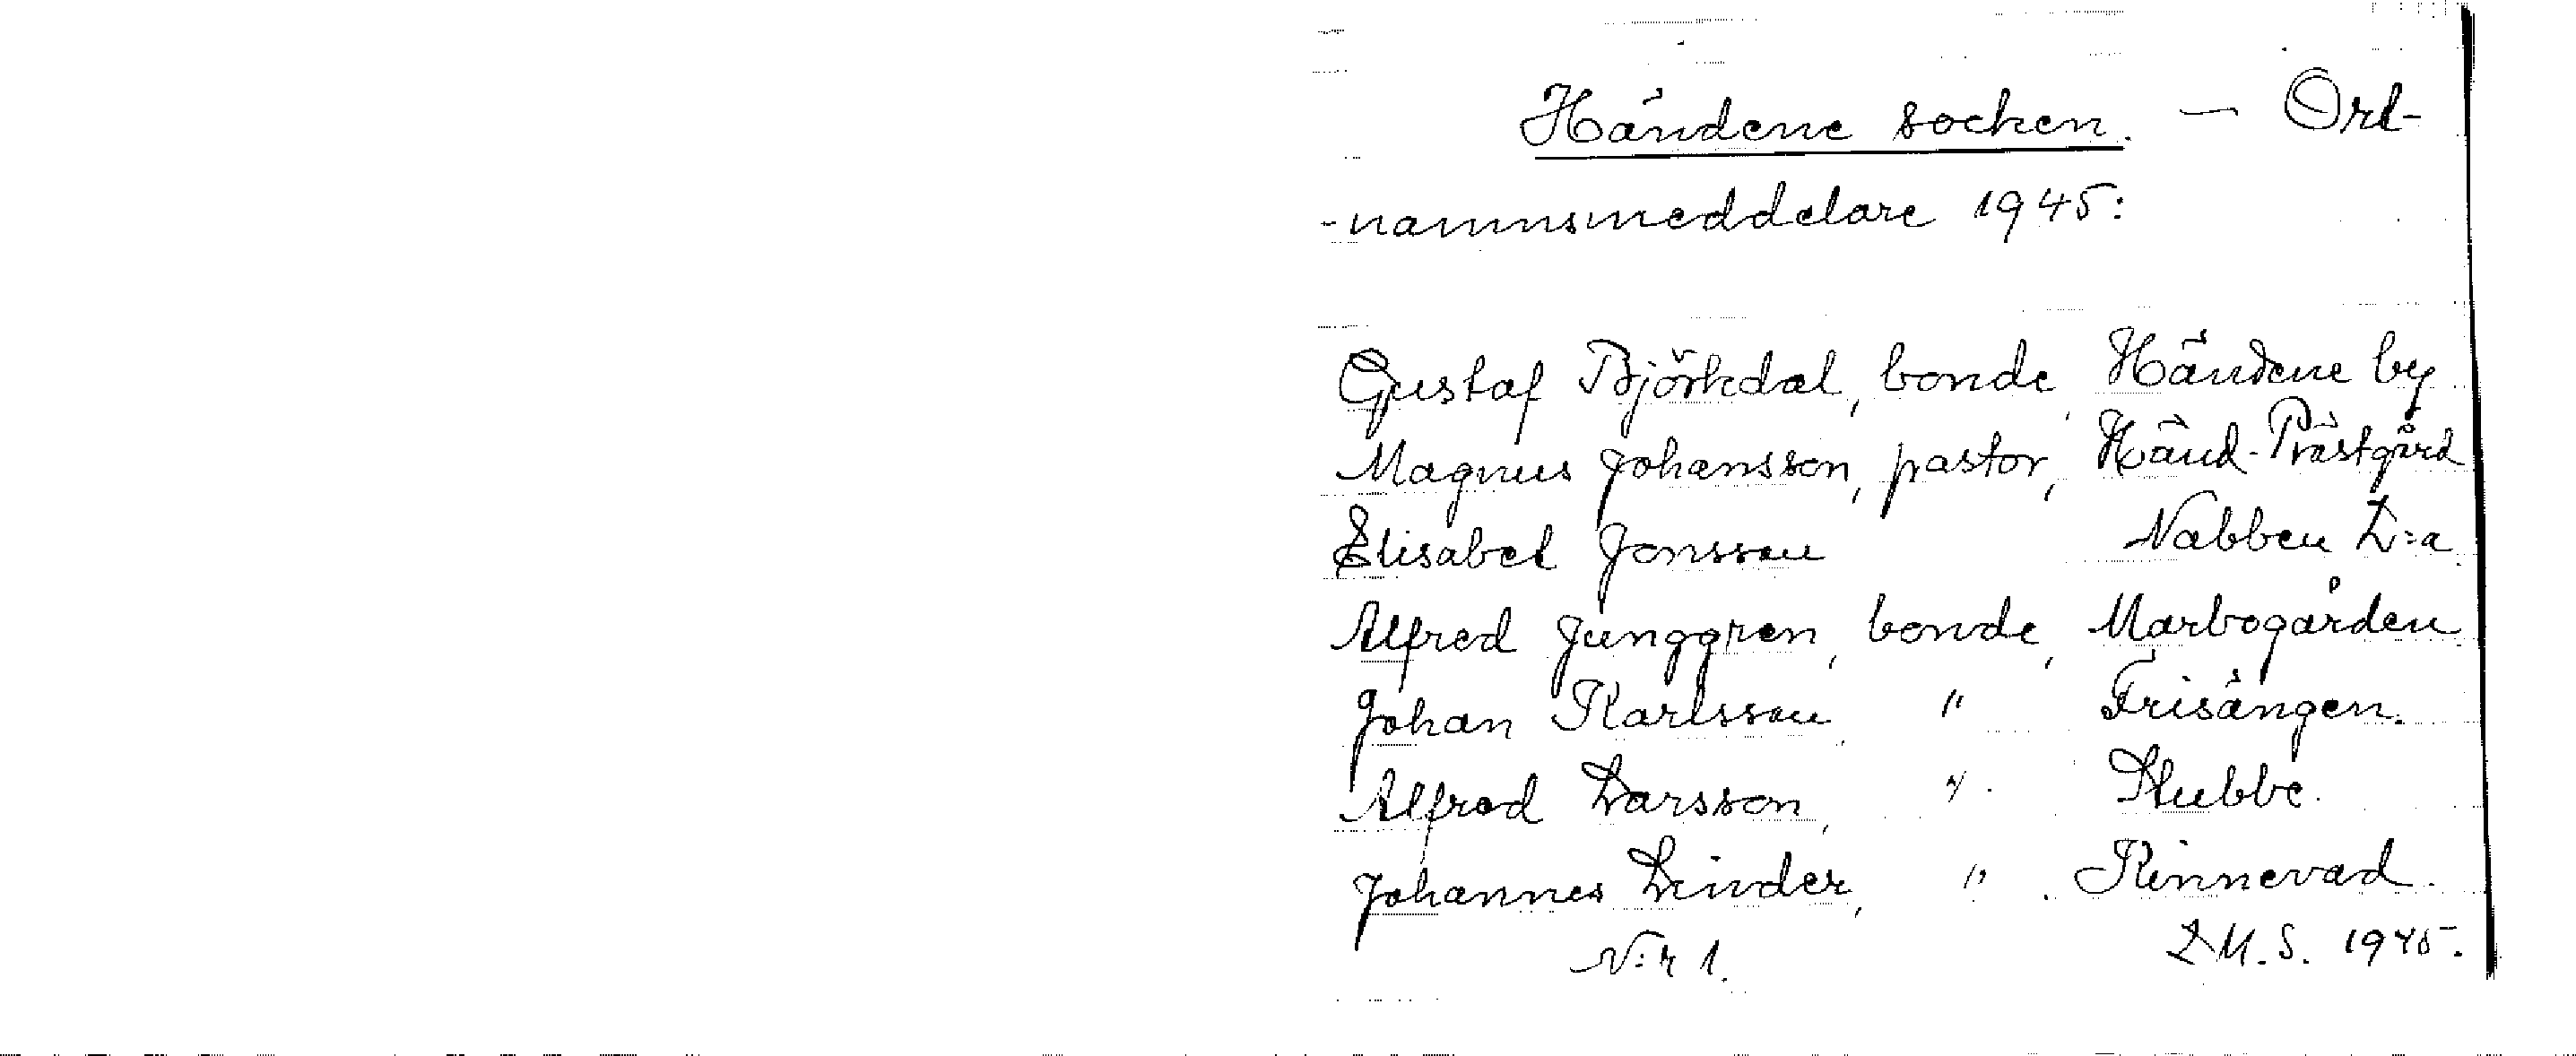 Händene socken. - Ort-
-namnsmeddelare 1945:
Gustaf Björkdal, bonde, Händene by
Magnus Johansson, pastor, Händ-Prästgård
Elisabet Jonsson Nabben L:a
Alfred Junggren, bonde, Marbogården
Johan Karlsson, " Frisängen.
Alfred Larsson, " Stubbe.
Johannes Linder, " Rinnevad.
N:r 1. L M.S. 1945.